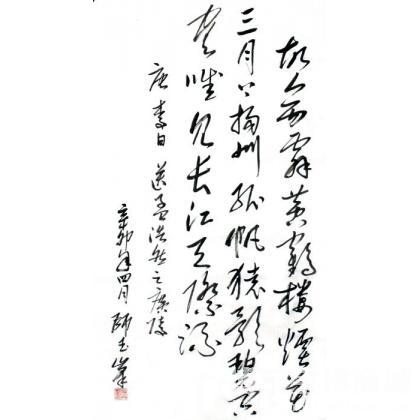 故人西辞黄鶴樓煙花
三月下揚州孤帆遠影碧空
尽唯见长江天際流
唐李白送孟浩然之廣陵
辛卯年四月师玉峯